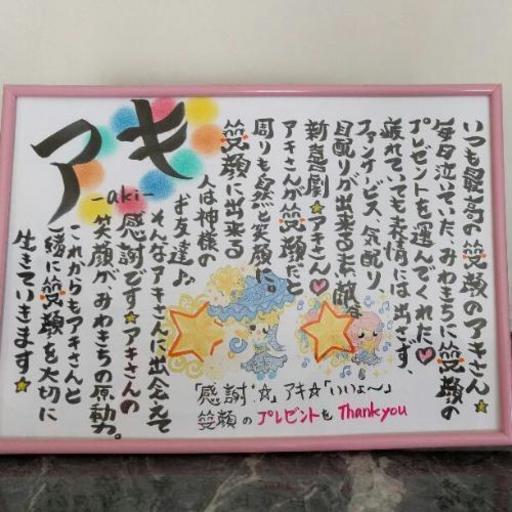 アキ
-aki-
いつも最高の笑顔のアキさん★
毎日泣いていた、みわきちに笑顔の
プレゼントを運んでくれた♡
疲れていても表情には出さず、
ファンサービス、気配り
目配りが出来る素敵な
新喜劇★アキさん♡
アキさんが笑顔だと
周りも自然と笑顔に。
笑顔に出来る
人は神様の
お友達♪
そんなアキさんに出会えて
感謝です★アキさんの
笑顔が、みわきちの原動力。
これからもアキさんと
一緒に笑顔を大切に
生きていきます★
「感謝:☆」アキ☆「いいよ〜」
笑顔のプレゼントを Thankyou